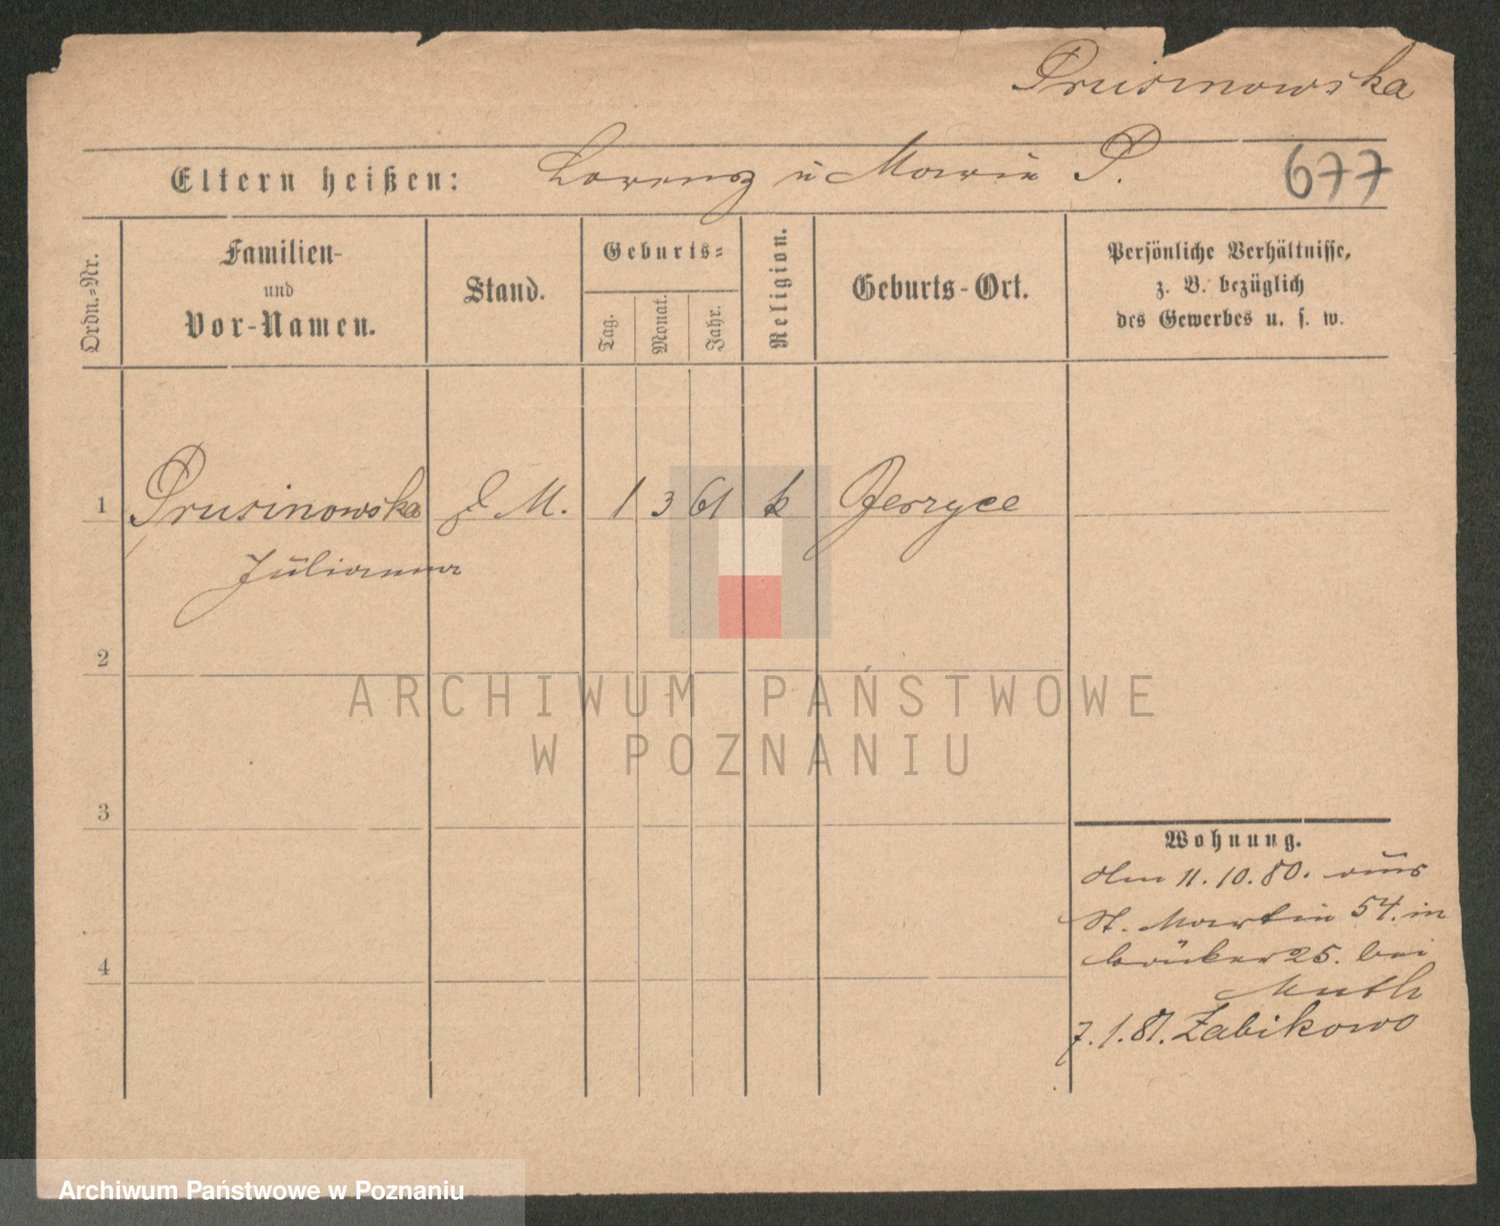 Prusinowska
Eltern heißen: Lorenz ü Marie P. 677
Ordn.-Nr.
Familien-
und
Vor-Namen.
Stand.
Geburts-
Tag.
Monat.
Jahr.
Religion.
Geburts-Ort.
Persönliche Verhältnisse,
z. B. bezüglich
des Gewerbes u. s. w.
1 Prusinowska D. M. 1 3 61 k Jerzyce
Jülianna
2
ARCHIWUM PAŃSTWOWE
W POZNANIU
3
Wohnung.
den 11.10.80. aüs
St. Martin 54. in
25. bei
Muth
4
7.1.81. Zabikowo
Archiwum Państwowe w Poznaniu